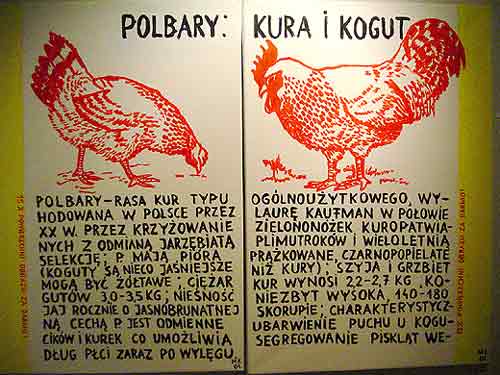 POLBARY: KURA I KOGUT
POLBARY-RASA KUR TYPU OGÓLNOUŻYTKOWEGO, WY-
HODOWANA W POLSCE PRZEZ LAURĘ KAUFMAN W POŁOWIE
XX W. PRZEZ KRZYŻOWANIE ZIELONONÓŻEK KUROPATWIA-
NYCH Z ODMIANĄ JARZĘBIATĄ PLIMUTROKÓW I WIELOLETNIĄ
SELEKCJĘ; P. MAJĄ PIÓRA PRĄŻKOWANE, CZARNOPOPIELATE
(KOGUTY SĄ NIECO JAŚNIEJSZE NIŻ KURY); SZYJA I GRZBIET
MOGĄ BYĆ ŻÓŁTAWE; CIĘŻAR KUR WYNOSI 2,2-2,7 KG, KO-
GUTÓW 3,0-3,5 KG; NIEŚNOŚĆ NIEZBYT WYSOKA, 140-180
JAJ ROCZNIE O JASNOBRUNATNEJ SKORUPIE; CHARAKTERYSTYCZ-
NĄ CECHĄ P. JEST ODMIENNE UBARWIENIE PUCHU U KOGU-
CIKÓW I KUREK CO UMOŻLIWIA SEGREGOWANIE PISKLĄT WE-
DŁUG PŁCI ZARAZ PO WYLĘGU.
POWIERZCHNI OBRAZU ZA DARMO!
POWIERZCHNI OBRAZU ZA DARMO!